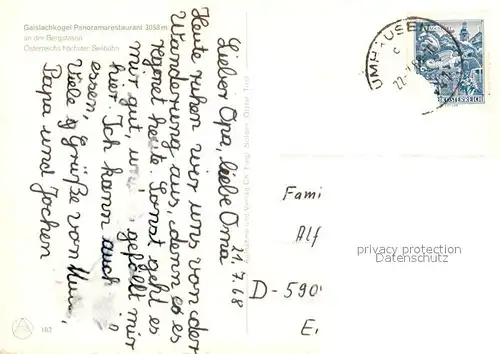 Gaislachkogel Panoramarestaurant 3058 m
an der Bergstation
Österreichs höchster Seilbahn
21.7.68
Lieber Opa, liebe Oma
Heute ruhen wir uns von der
Wanderung aus, denn es
regnet heute. Sonst geht es
mir gut, gefällt mir
hier. Ich kann auch
essen,
Viele Grüße von
Papa und Jochen
UMHAUSEN
ÖSTERREICH
Fami
Alf
D-590
E
privacy protection
Datenschutz
182